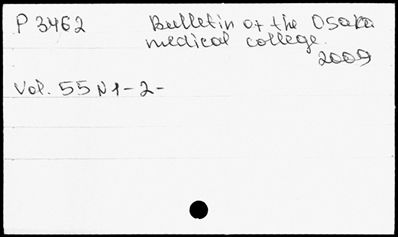 P 3462 Bulletin of the Osaka
medical college.
2009
Vol. 55 N 1-2-